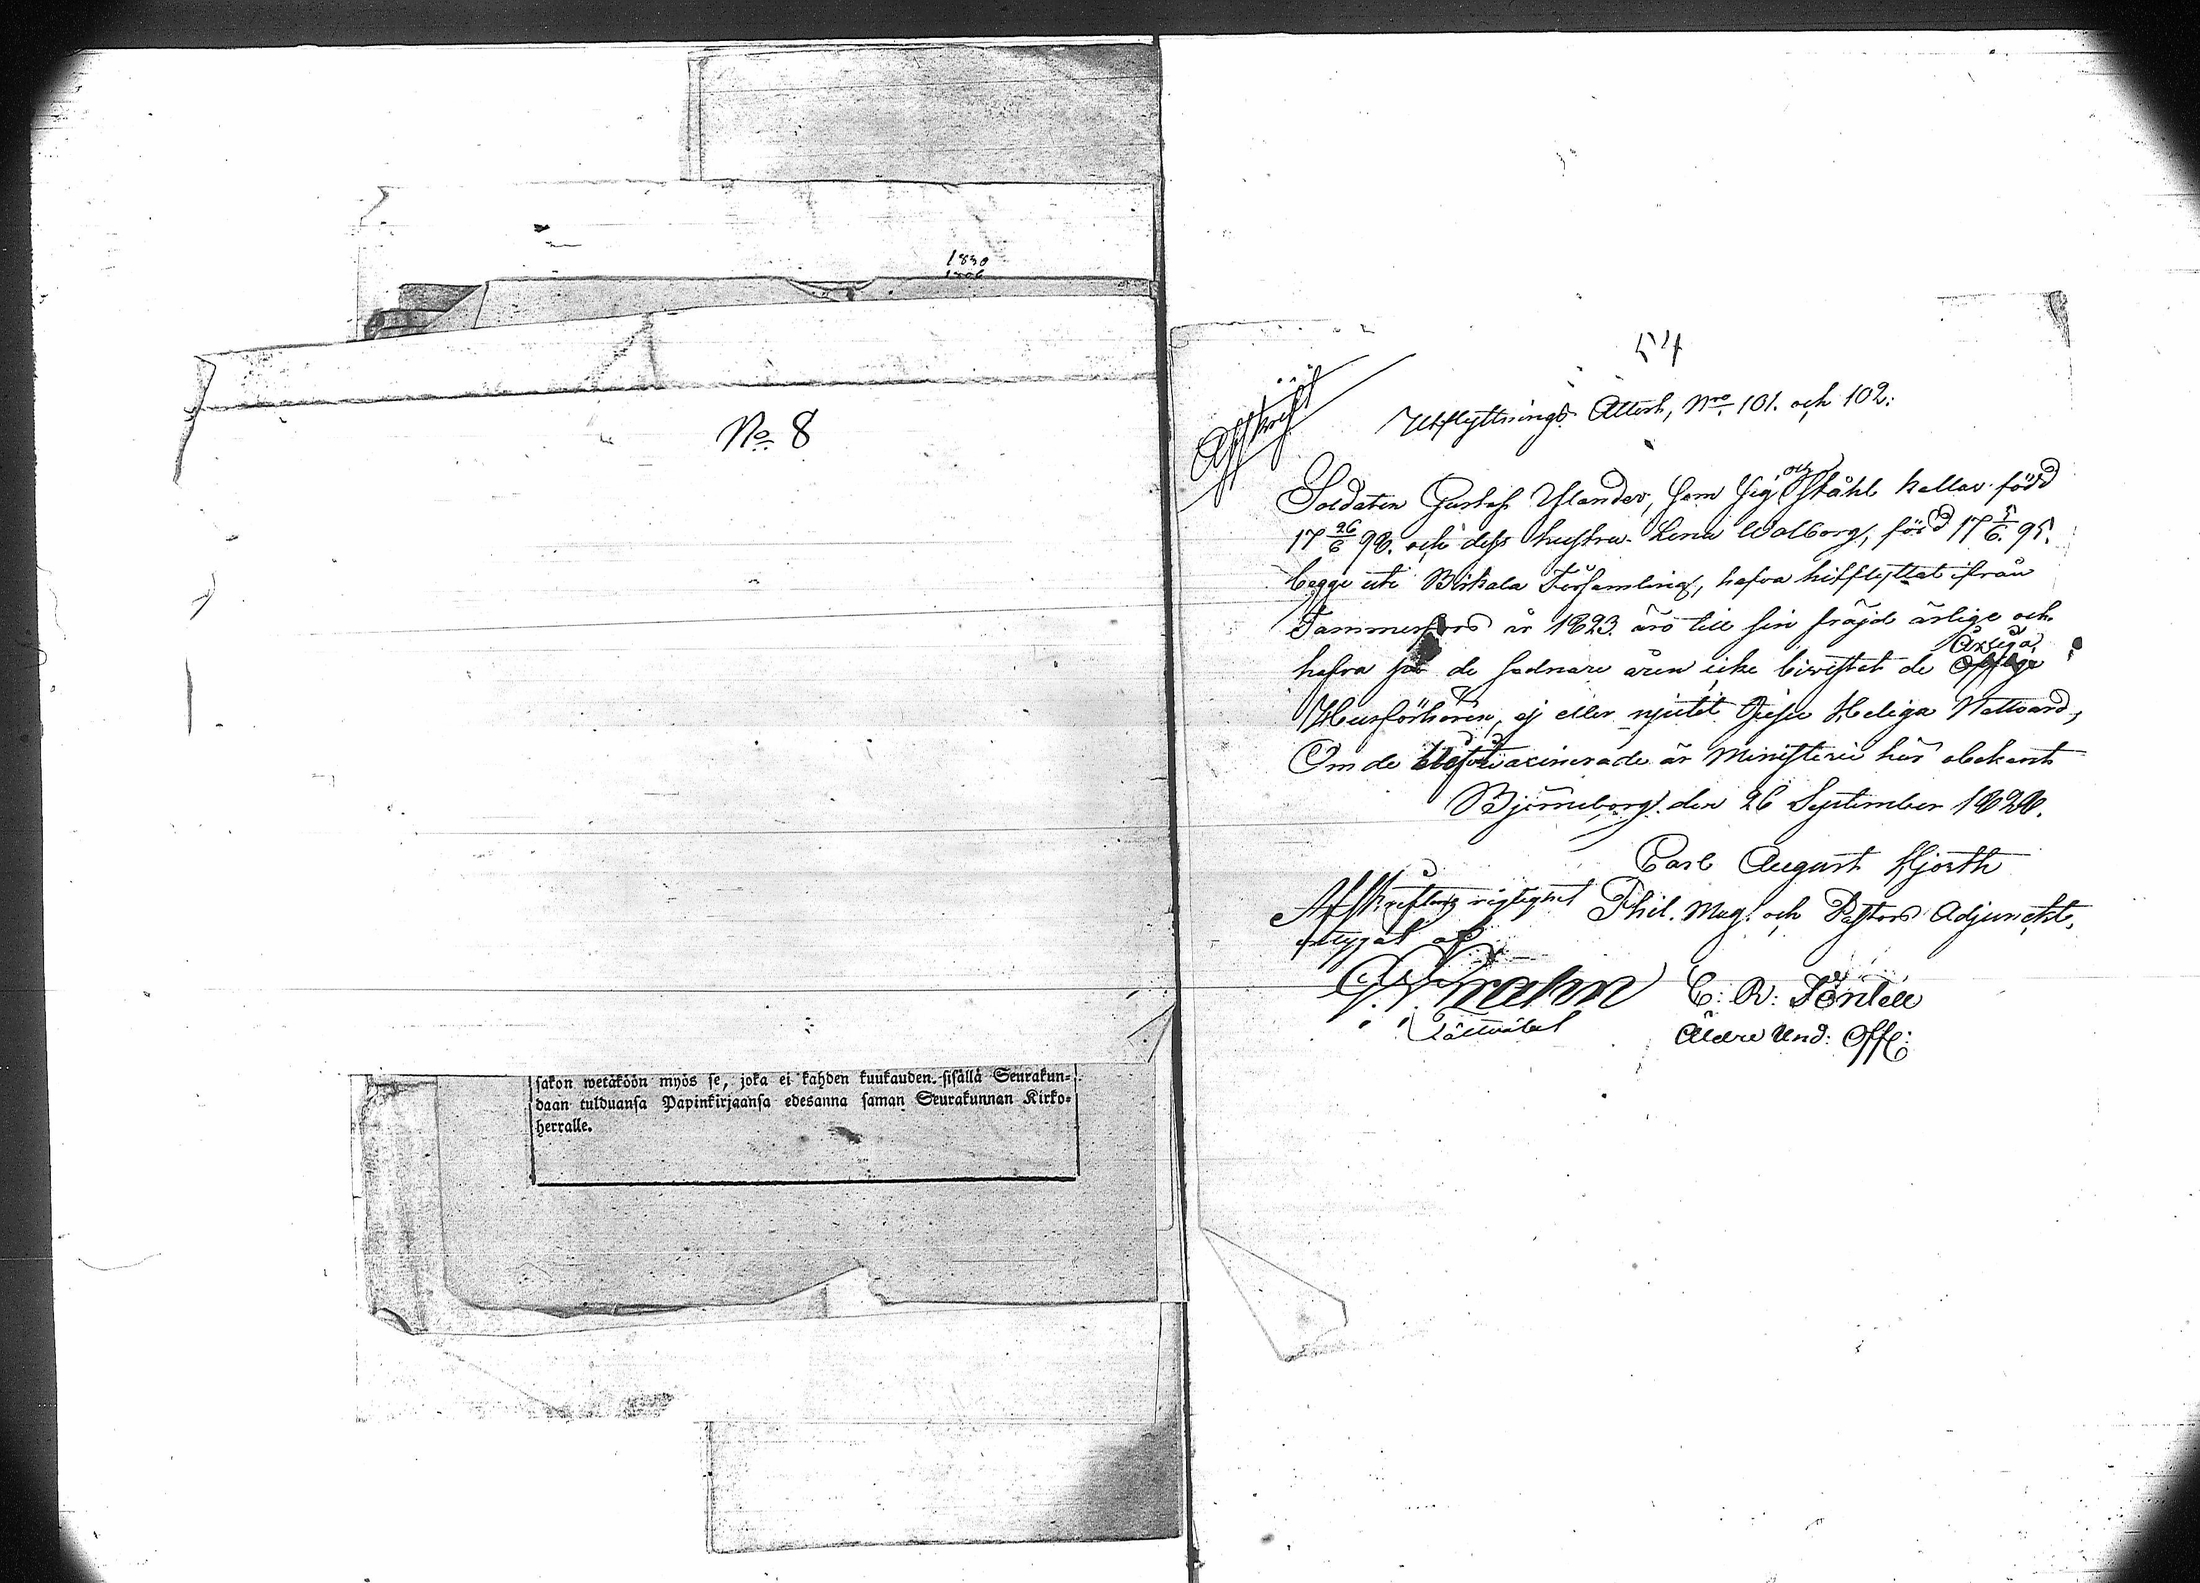 1830
No 8
sakon wetäköön myös se, joka ei kahden kuukauden sisällä Seurakun=
daan tulduansa Papinkirjaansa edesanna saman Seurakunnan Kirko=
herralle.
54
Afskrift
Utflyttnings Attest, Nro 101. och 102:
Soldaten Gustaf Ylander, som sig och Ståhl kallar född
17 26/6 98. och dess hustru Lena Walborg, född 17 5/6. 95.
begge uti Birkala Församling, hafva hitflyttat ifrån
Tammerfors år 1823. äro till sin fräjd ärlige och
hafva på de sednare åren icke biwistat de Årliga
Husförhören, ej eller njutit Jesu Heliga Nattvard,
Om de äro vaccinerade är Ministerie här obekant
Björneborg den 26 September 1828.
Carl August Hjorth
Phil. Mag. och Pastors Adjunckt.
Afskriftens rigtighet
intygat af
C: R: Foritell
Äldre Und: Off: